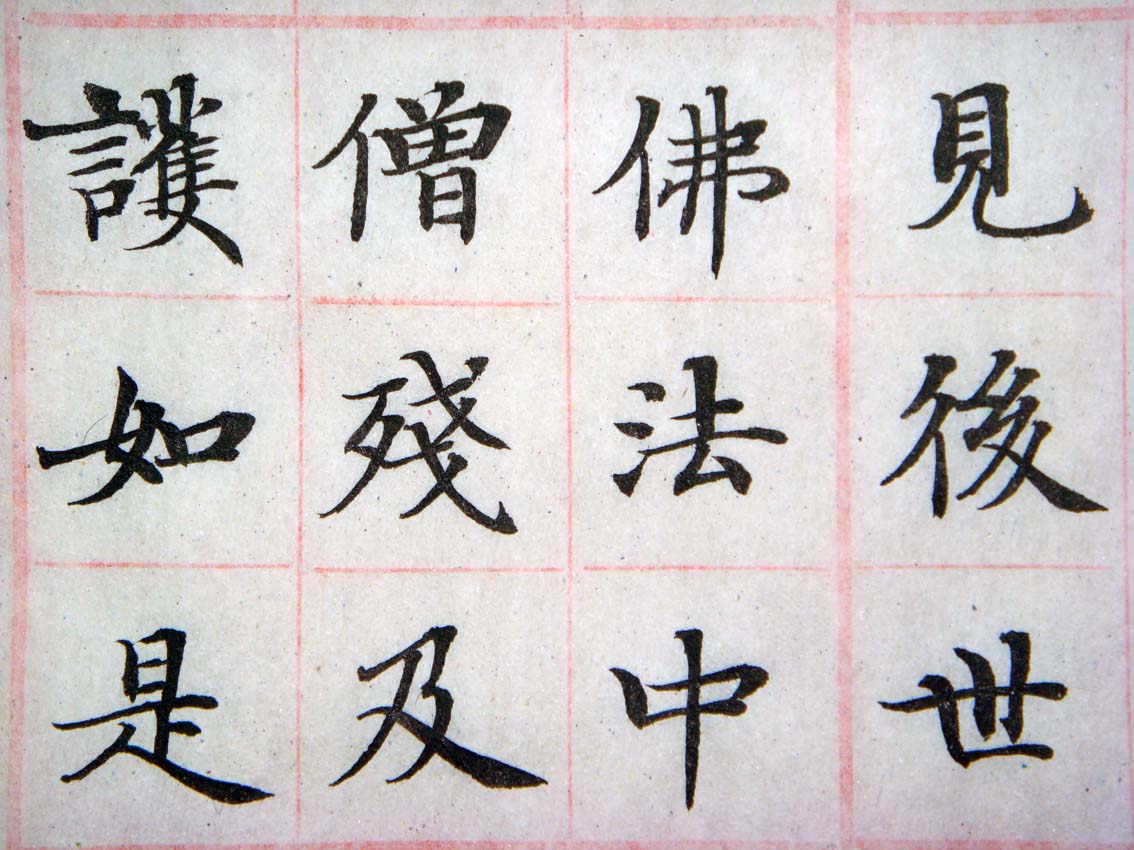 見後世
佛法中
僧殘及
護如是